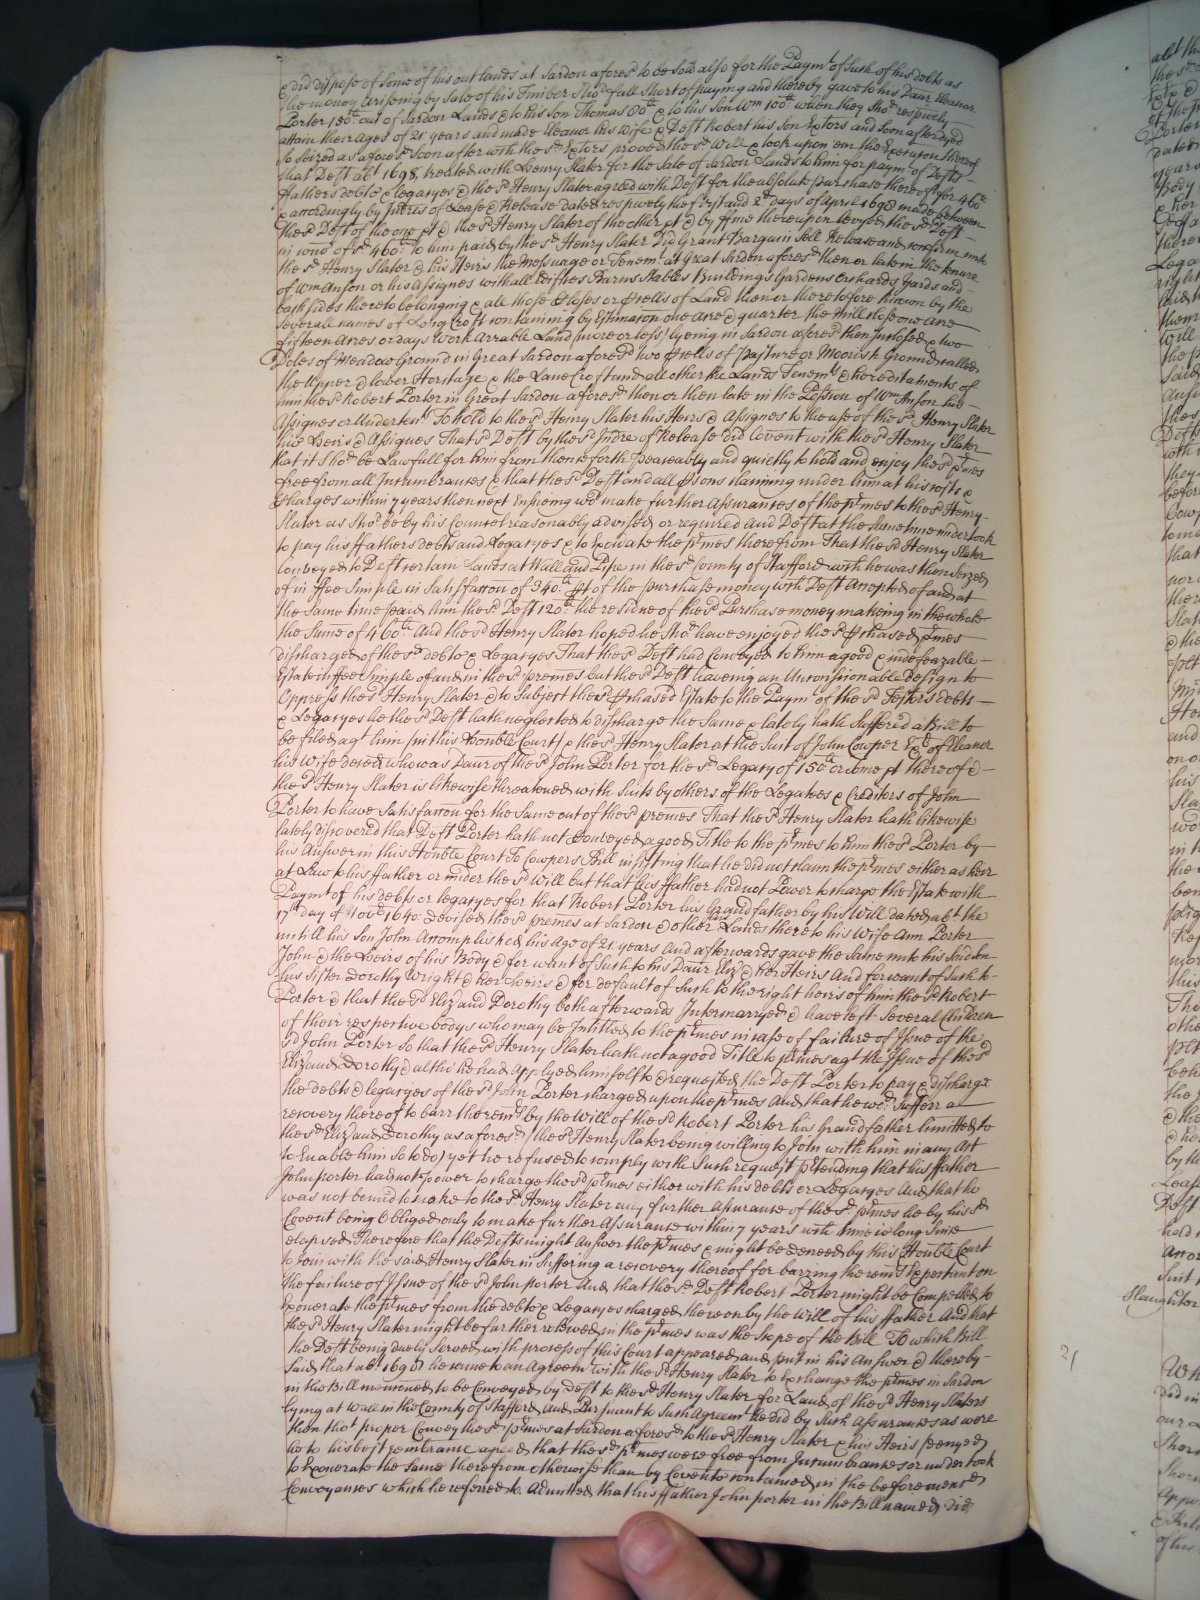 & did dispose of some of his out lands at Sardon afores^d to be sold also for the Paym^t of such of his debts as
the money ariseing by Sale of his Timber sho^d fall short of paying and thereby gave to his Daur Eleanor
Porter 150^li out of Sardon Lands & to his son Thomas 80^li & to his son W^m 100^li when they sho^d respively
attain their ages of 21 years and made Eleanor his wife & Deft Robert his son Extors and soon after dyed
so seized as afores^d soon after w^ch the s^d Extors proved the s^d Will & took upon em the Execuçon thereof
that Deft ab^t 1698 treated with Henry Slater for the Sale of Sardon Lands to him for paym^t of Defts
ffathers debts & legacyes & the s^d Henry Slater agreed with Deft for the absolute purchase thereof for 460^li
& accordingly by Indres of Lease & Release dated respively the first and 2^d days of April 1698 made between
the s^d Deft of the one p^t & the s^d Henry Slater of the other p^t & by ffine thereupon levyed the s^d Deft
in cond of s^d 460^li to him paid by the s^d Henry Slater Did Grant Bargain Sell Release and confirm unto
the s^d Henry Slater & his Heirs the Messuage or Tenem^t at Great Sardon afores^d then or late in the tenure
of W^m Anson or his Assignes with all Edifices Barns Stables Buildings Gardens Orchards Yards and
backsides thereto belonging & all those Closes or pcells of Land then or theretofore known by the
severall names of Long Croft containing by Estimacon one Acre & quarter the Mill close one Acre
fifteen Acres or days work Arrable Land (more or less) lyeing in Sardon afores^d then Inclosed & two
Doles of Meadow Ground in Great Sardon afores^d two pcells of Pasture or Moorish Ground called
the Upper & lower Heritage & the Lane Croft and all other the Lands Tenem^ts & hereditaments of
him the s^d Robert Porter in Great Sardon afores^d then or then late in the Possion of W^m Anson his
Assignes or Undertents To hold to the s^d Henry Slater his Heirs & Assignes to the use of the s^d Henry Slater
his Heirs & Assignes That s^d Deft by the s^d Indre of Release did Covent with the s^d Henry Slater
that it sho^d be Lawfull for him from thenceforth peaceably and quietly to hold and enjoy the s^d pmes
free from all Incumbrances & that the s^d Deft and all psons claiming under him at his costs &
Charges within 7 years then next Ensueing wo^d make further Assurances of the pmes to the s^d Henry
Slater as sho^d be by his Councel reasonably advised or required And Deft at the same time undertook
to pay his ffathers debts and Legacyes & to Exonerate the pmes therefrom That the s^d Henry Slater
Conveyed to Deft certain Lands at Wall and Pipe in the s^d County of Stafford w^ch he was then seized
of in ffee simple in Satisfaction of 340^li pt of the purchase money w^ch Deft Accepted of and at
the same time paid him the s^d Deft 120^li the residue of the s^d Purchase money making in the whole
the Sume of 460^li And the s^d Henry Slater hoped he Sho^d have enjoyed the s^d pchased pmes
discharged of the s^d debts & Legacyes That the s^d Deft had Conveyed to him a good & indefeazable
Estate in ffee Simple of and in the s^d premes but the s^d Deft haveing an Unconscionable design to
Oppress the s^d Henry Slater & to Subject the s^d pchased Estate to the Paym^t of the s^d Testors debts
& Legacyes he the s^d Deft hath neglected to discharge the same & lately hath Suffered a Bill to
be filed ag^t him (in this Honble Court) & the s^d Henry Slater at the Suit of John Cowper Ex^or of Eleanor
his Wife deced who was Daur of the s^d John Porter for the s^d Legacy of 150^li or some pt thereof &
the s^d Henry Slater is likewise threatened with Suits by others of the Legatees & Creditors of John
Porter to have Satisfaction for the same out of the s^d premes That the s^d Henry Slater hath likewise
lately discovered that Deft Porter hath not Conveyed a good Title to the pmes to him the s^d Porter by
his Answer in this Honble Court To Cowpers Bill insisting that he did not claim the pmes either as heir
at Law to his ffather or under the s^d Will but that his ffather had not Power to charge the Estate with
Paym^t of his debts or legacyes for that Robert Porter his Grandfather by his Will dated ab^t the
17^th day of Nov^r 1640 devised the s^d premes at Sardon & other his Lands there to his Wife Ann Porter
untill his Son John Accomplished his Age of 21 years And afterwards gave the same unto his s^d son
John & the Heirs of his Body & for want of such to his Daur Eliz^a & her Heirs And for want of such to
his Sister Dorothy Wright & her Heirs & for default of such to the right heirs of him the s^d Robert
Porter & that the s^d Eliz^a and Dorothy both afterwards Intermarryed & have left severall Children
of their respective bodys who may be Intitled to the pmes in case of failure of Issue of the
s^d John Porter so that the s^d Henry Slater hath not a good Title to pmes ag^t the Issue of the s^d
Eliz^a and Dorothy & altho he had Applyed himself to & requested the Deft Porter to pay & discharge
the debts & legacyes of the s^d John Porter charged upon the pmes And that he wo^d Suffer a
recovery thereof to barr the rem^rs by the Will of the s^d Robert Porter his Grandfather limitted to
the s^d Eliz^a and Dorothy as afores^d (the s^d Henry Slater being willing to Join with him in any Act
to Enable him so to do) yet he refused to comply with such request ptending that his ffather
John porter had not power to charge the s^d pmes either with his debts or Legacyes And that he
was not bound to make to the s^d Henry Slater any further Assurance of the s^d pmes he by his s^d
Covent being Obliged only to make further Assurance within 7 years w^ch time is long since
elapsed Therefore that the Defts might Answer the pmes & might be decreed by this Honble Court
to Join with the said Henry Slater in suffering a recovery thereof for barring the rem^rs Expectant on
the failure of Issue of the s^d John porter And that the s^d Deft Robert Porter might be Compelled to
Exonerate the pmes from the debts & Legacyes charged thereon by the Will of his ffather And that
the s^d Henry Slater might be further releived in the pmes was the scope of the Bill To which Bill
the Deft being duely served with process of this Court appeared and put in his Answer & thereby
said that ab^t 1698 he came to an Agreem^t with the s^d Henry Slater to Exchange the pmes in Sardon
in the Bill menconed to be Conveyed by Deft to the s^d Henry Slater for Land of the s^d Henry Slaters
lying at Wall in the County of Stafford And Pursuant to such Agreem^t he did by such Assurances as were
then tho^t proper Convey the s^d pmes at Sardon afores^d to the s^d Henry Slater & his Heirs Denyed
he to his best remembrance agreed that the s^d pmes were free from Incumbrances or undertook
to Exonerate the same therefrom otherwise than by Covents contained in the beforemenc^d
Conveyances which he referred to Admitted that his ffather John porter in the Bill named did
Slaughter
21